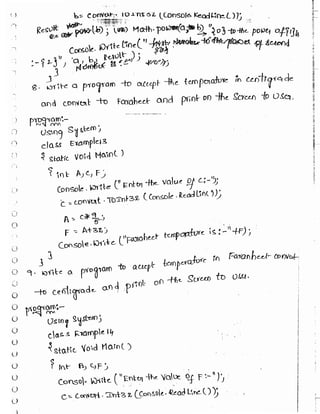 b= Convert. ToInt32 (Console.ReadLine());
Result = Math.pow(a, b)
Console.Write Line("
:- {2}", a, b, Result);
}
8. write a program to accept the temperature in centigrade
and convert to Faraheet and print on the Screen to User.
program:-
Using System;
class Example13
{ static void Main( )
{ int A, C, F;
Console.Write ("Enter the value of C:-");
C = convert. ToInt32 (Console.ReadLine());
A = C*9/5;
F = A+32;
Console.Write ("Faraheet temperature is:-"+F);
}
}
9. write a program to accept temperature in Faranheet convert
to centigrade and print on the Screen to User.
program:-
Using System;
class Example 14
{ static void Main( )
{ int B, C, F;
Consol. Write ("Enter the Value of F:-");
C = Convert. Int32 (Console.Read Line());